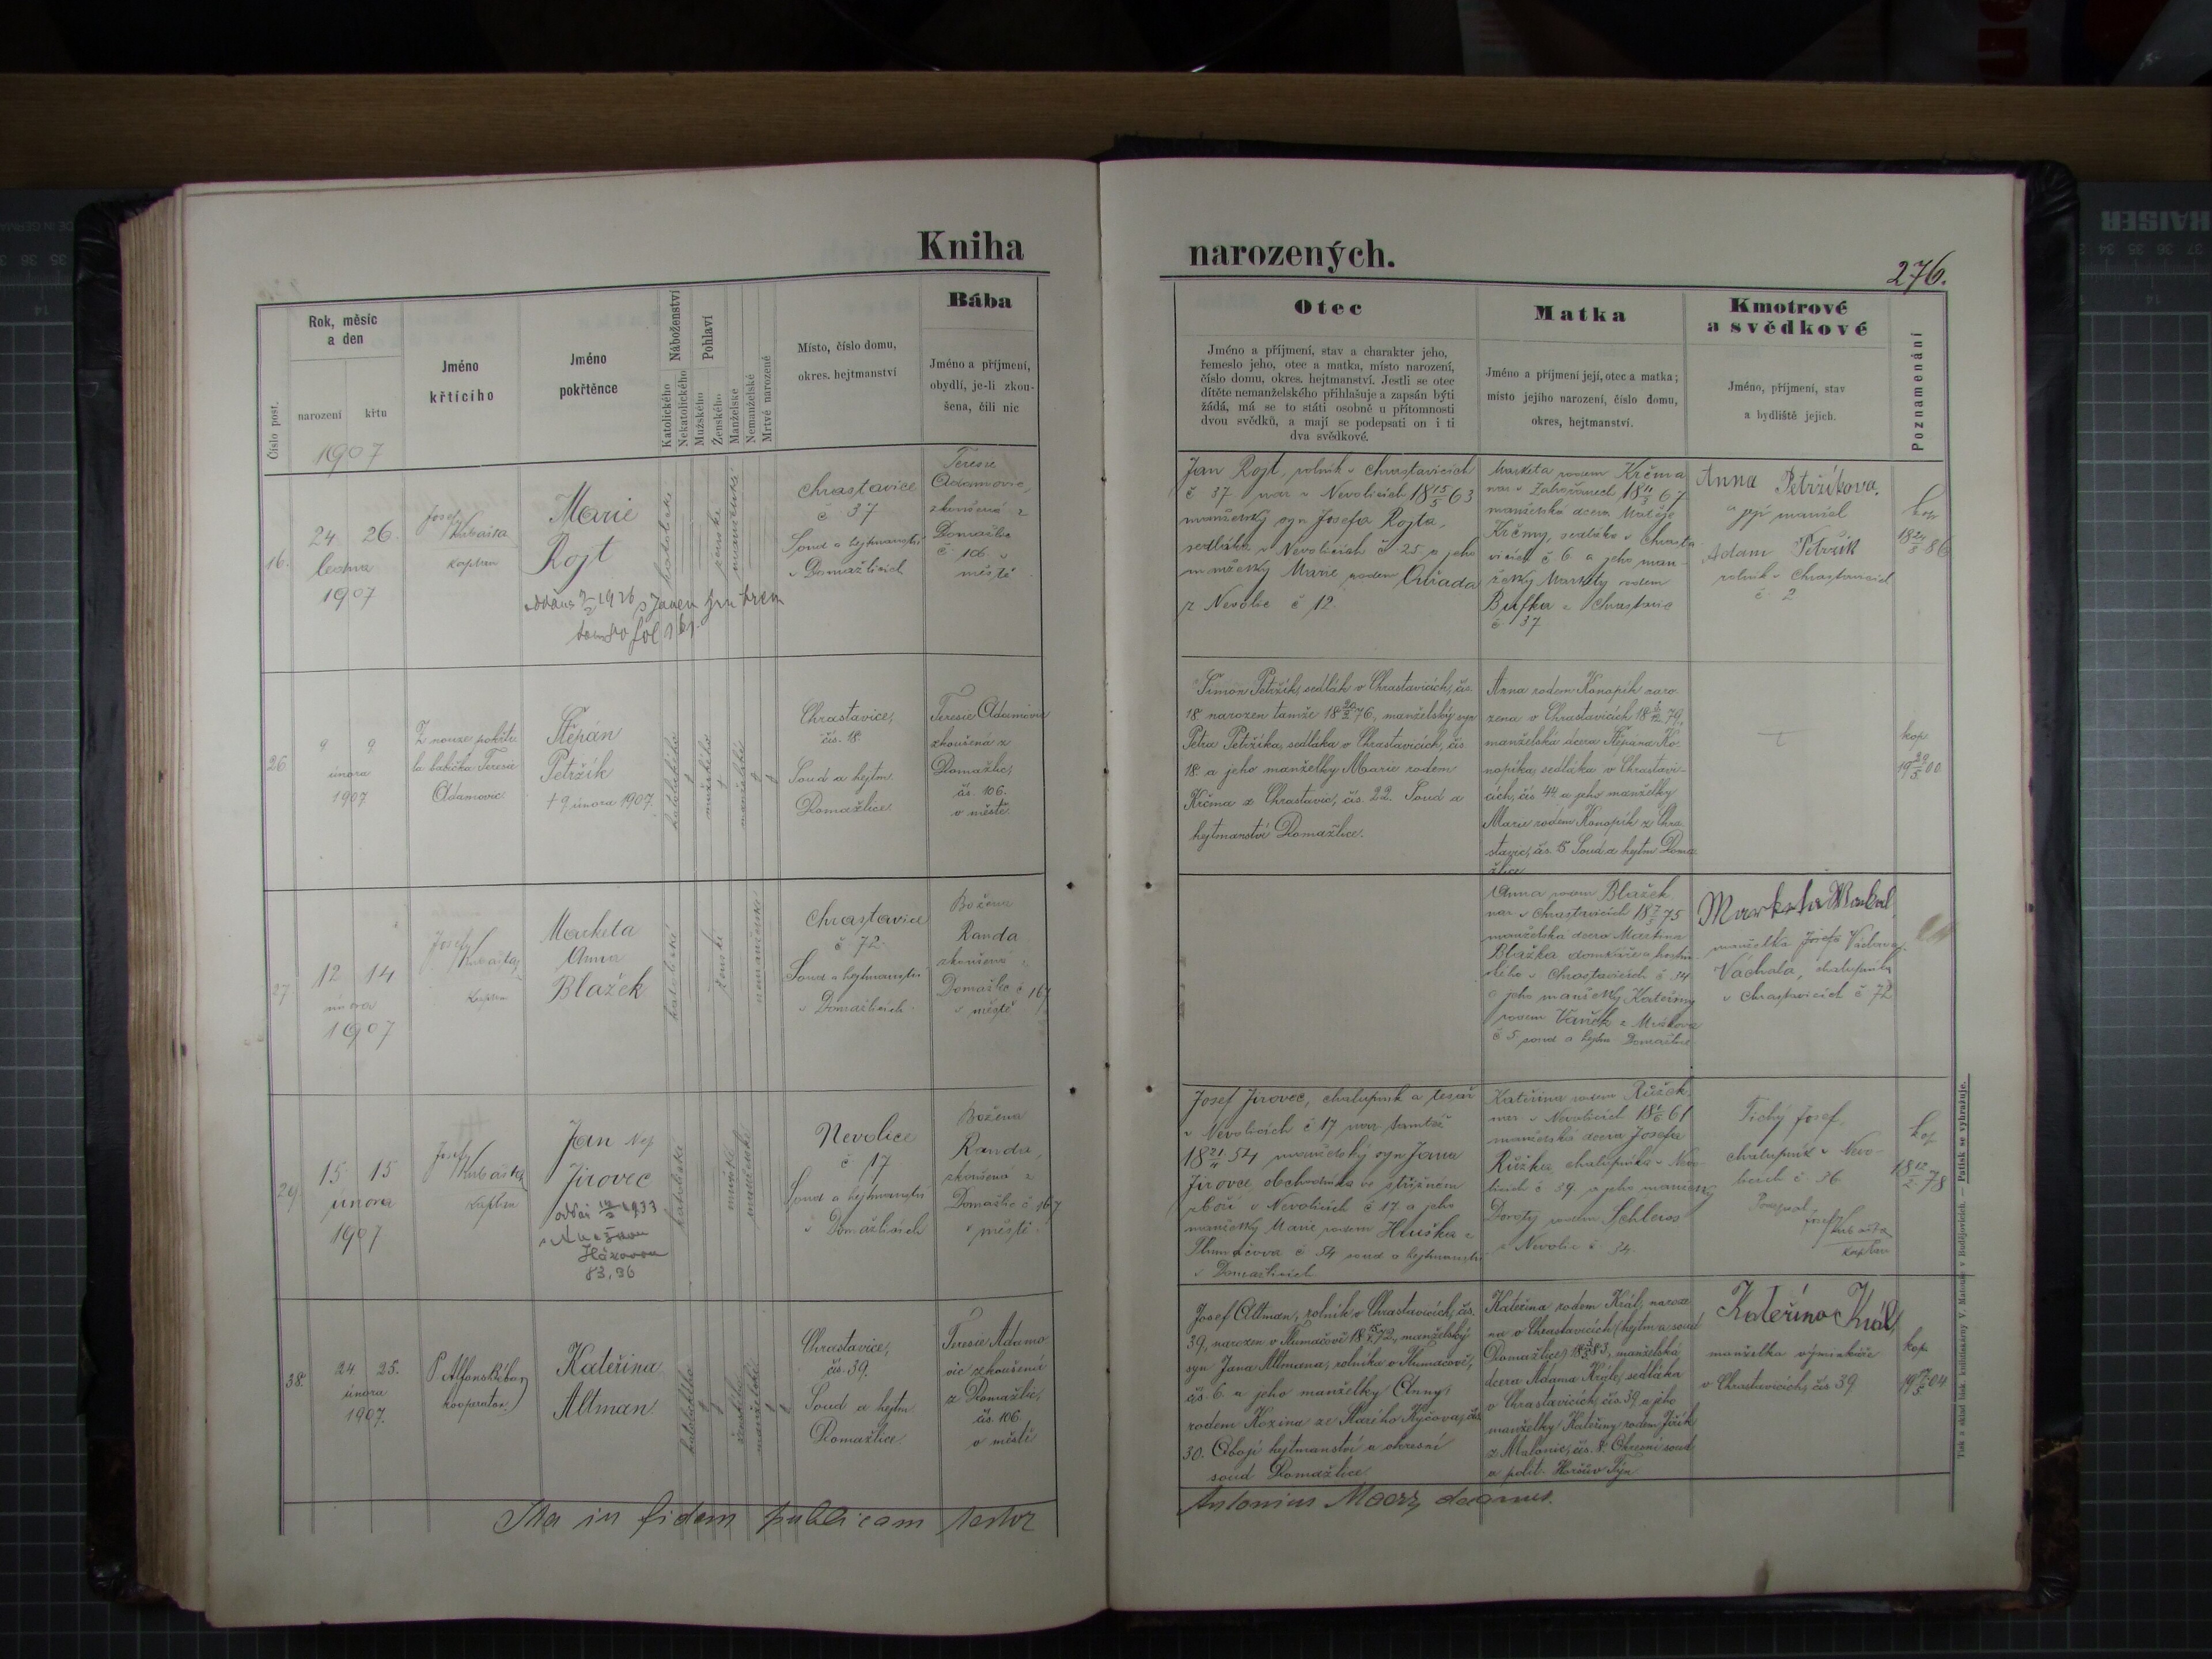 Kniha
narozených.
276.
Číslo post.
Rok, měsíc
a den
narození
křtu
1907
Jméno
křtícího
Jméno
pokřtěnce
Náboženství
Katolického
Nekatolického
Pohlaví
Mužského
Ženského
Manželské
Nemanželské
Mrtvě narozené
Místo, číslo domu,
okres. hejtmanství
Bába
Jméno a příjmení,
obydlí, je-li zkou-
šena, čili nic
Otec
Jméno a příjmení, stav a charakter jeho,
řemeslo jeho, otec a matka, místo narození,
číslo domu, okres. hejtmanství. Jestli se otec
dítěte nemanželského přihlašuje a zapsán býti
žádá, má se to státi osobně u přítomnosti
dvou svědků, a mají se podepsati on i ti
dva svědkové.
Matka
Jméno a příjmení její, otec a matka;
místo jejího narození, číslo domu,
okres, hejtmanství.
Kmotrové
a svědkové
Jméno, příjmení, stav
a bydliště jejich.
Poznamenání
16.
24. 26.
ledna
1907
Josef
Kubašta
kaplan
Marie
Rojt
katolické
ženské
manželské
Chrastavice
č 37
Soud a hejtmanství
v Domažlicích
Teresie
Adamovic,
zkoušená z
Domažlic
č. 106 v
městě
Jan Rojt, rolník v Chrastavicích
č 37 nar v Nevolicích 18 15/5 63
manželský syn Josefa Rojta,
sedláka v Nevolicích č 25 a jeho
manželky Marie rodem
z Nevolic č 12.
Marketa rodem Krčma
manželská dcera Matěje
Krčmy, sedláka v Chrasta
vicích č 6 a jeho man-
želky Markety rodem
Buffka z Chrastavic
č 37
Anna Petržíkova.
Adam Petržík
rolník v Chrastavicích
č 2
kop
18 24/5 86
26
9 9
února
1907
Z nouze pokřti
la babička Teresie
Adamovic.
Štěpán
Petržík
† 9 února 1907.
katolického
mužského
manželské
Chrastavice,
čís. 18
Soud a hejtm.
Domažlice.
Teresie Adamovic
zkoušená z
Domažlic,
čís. 106.
v městě.
Šimon Petržík, sedlák v Chrastavicích, čís.
18 narozen tamže 18 20/2 76, manželský syn
Petra Petržíka, sedláka v Chrastavicích, čís.
18 a jeho manželky Marie rodem
Krčma z Chrastavic, čís. 22. Soud a
hejtmanství Domažlice.
Anna rodem Konopík naro
zena v Chrastavicích 18 8/12 79,
manželská dcera Štěpána Ko
nopíka, sedláka v Chrastavi-
cích, čís. 44 a jeho manželky
Marie rodem Konopík z Chra
stavic, čís. 5 Soud a hejtm Doma
žlice
kop.
19 29/5 00
27
12 14
února
1907
Josef
Kubašta,
kaplan
Marketa
Anna
Blažek
katolické
ženské
nemanželské
Chrastavice
č 72.
Soud a hejtmanství
v Domažlicích
Božena
Randa
zkoušená z
Domažlic č 167
v městě
Anna rodem Blažek
nar v Chrastavicích 18 7/5 75
manželská dcera Martina
Blažka domkáře a hostin
ského v Chrastavicích č 54
a jeho manželky Kateřiny
rodem Vaněk z Mrákova
č 5 soud a hejtm Domažlice
manželka Josefa Václava
Váchala, chalupníka
v Chrastavicích č 72
29.
15 15
února
1907
Josef
Kubašta,
kaplan
Jan Nep
Jirovec
katolické
mužské
manželské
Nevolice
č 17
Soud a hejtmanství
v Domažlicích
Božena
Randa,
zkoušená z
Domažlic č 167
v městě
Josef Jirovec, chalupník a tesař
v Nevolicích č 17 nar tamtéž
18 21/11 54 manželský syn Jana
Jirovce obchodníka ve střižném
zboží v Nevolicích č 17 a jeho
manželky Marie rodem Hruška z
Tlumačova č 54 soud a hejtmanství
v Domažlicích
Kateřina rodem Růžek,
nar v Nevolicích 18 1/6 61
manželská dcera Josefa
Růžka chalupníka v Nevo-
licích č 39 a jeho manželky
Doroty rodem Schleiss
z Nevolic č 34.
Tichý Josef,
chalupník v Nevo-
licích č. 36
Podepsal
Josef Kubašta
kaplan
kop
18 12/2 78
38.
24 25.
února
1907.
P. Alfons
kooperator
Kateřina
Altman
katolického
ženského
manželské
Chrastavice,
čís. 39.
Soud a hejtm.
Domažlice.
Teresie Adamo
vic zkoušená
z Domažlic,
čís. 106
v městě
Josef Altman, rolník v Chrastavicích, čís.
39, narozen v Tlumačově 18 15/1 72, manželský
syn Jana Altmana, rolníka v Tlumačově,
čís. 6 a jeho manželky Anny,
rodem Kozina ze Starého Kyčova, čís.
30. Obojí hejtmanství a okresní
soud Domažlice.
Kateřina rodem Král, naroze
na v Chrastavicích (hejtm a soud
Domažlice) manželská
dcera Adama Krále, sedláka
v Chrastavicích, čís. 39 a jeho
manželky Kateřiny rodem
z Malonic, čís. 4 Okresní soud
a polit. Horšův Týn.
Kateřina Král,
manželka výminkáře
v Chrastavicích, čís 39
kop
Ita in fidem publicam testor
Antonius decanus.
Tisk a sklad knihtiskárny V. Matouše v Budějovicích. — Patisk se vyhražuje.
KAISER